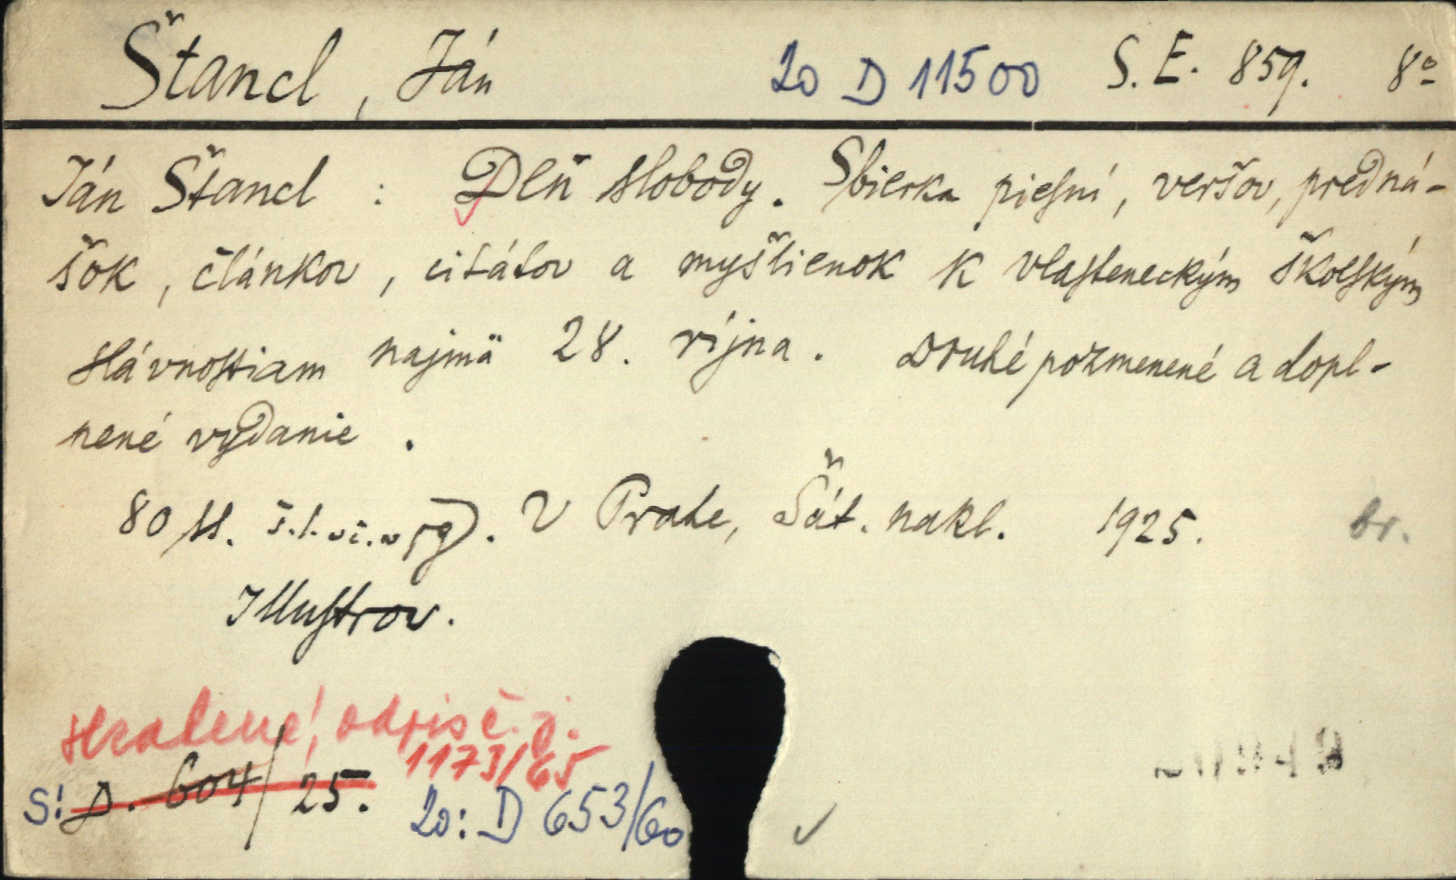 Štancl, Ján 2o D 11500 S.E. 859. 8º
Ján Štancl : Deň slobody. Sbierka piesní, veršov, predná-
šok, článkov, citátov a myšlienok k vlasteneckým školským
slávnostiam najmä 28. ríjna. Druhé pozmenené a dopl-
nené vydanie.
80 st. V Prahe, Št. nakl. 1925. br.
Illustrov.
Stratené, odpis č.j.
1173/65
S: D. 604/25. 2o: D 653/60